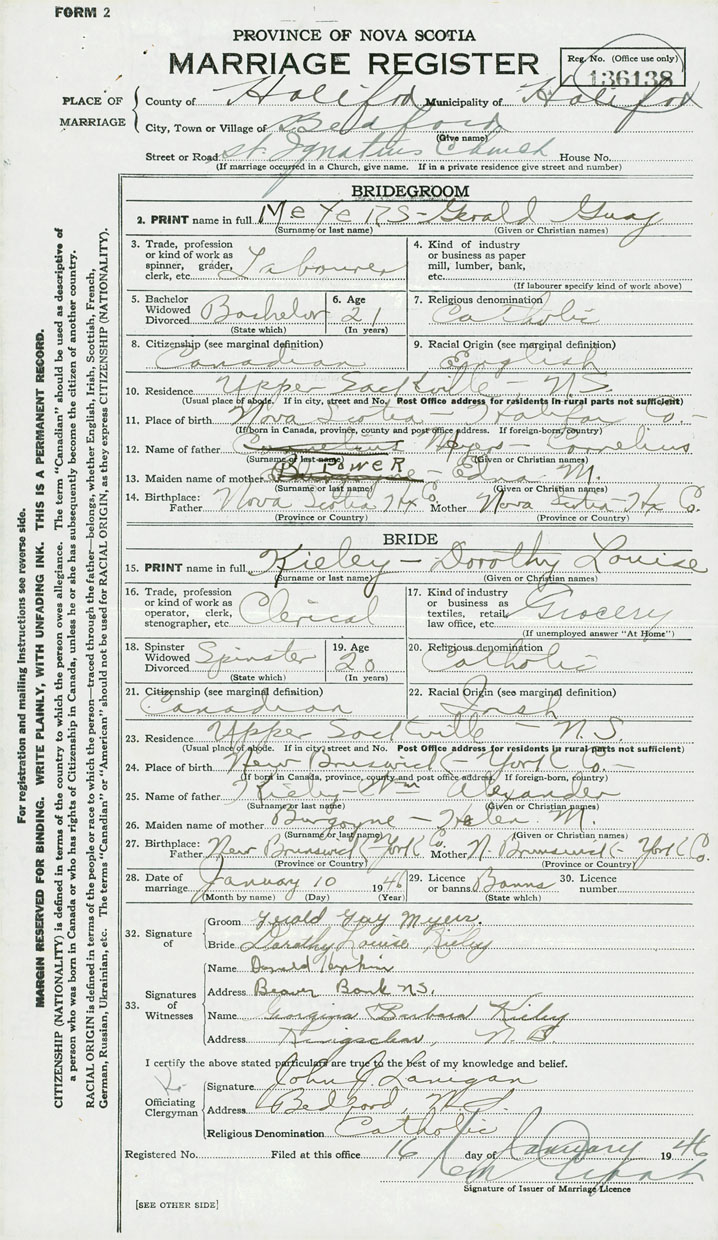 FORM 2
PROVINCE OF NOVA SCOTIA
MARRIAGE REGISTER
Reg. No. (Office use only)
136138
PLACE OF MARRIAGE
County of Halifax Municipality of Halifax
City, Town or Village of Bedford
(Give name)
Street or Road St. Ignatius Church House No.
(If marriage occurred in a Church, give name. If in a private residence give street and number)
BRIDEGROOM
2. PRINT name in full MeYeRS - Gerald Guay
(Surname or last name) (Given or Christian names)
3. Trade, profession or kind of work as spinner, grader, clerk, etc. Labourer
4. Kind of industry or business as paper mill, lumber, bank, etc.
(If labourer specify kind of work above)
5. Bachelor Widowed Divorced Bachelor
(State which)
6. Age 21
(In years)
7. Religious denomination Catholic
8. Citizenship (see marginal definition) Canadian
9. Racial Origin (see marginal definition) English
10. Residence Upper Sackville - N.S.
(Usual place of abode. If in city, street and No. Post Office address for residents in rural parts not sufficient)
11. Place of birth Nova Scotia Halifax Co. -
(If born in Canada, province, county and post office address. If foreign-born, country)
12. Name of father Myers - Cornelius
(Surname or last name) (Given or Christian names)
13. Maiden name of mother POWER - Edna M.
(Surname or last name) (Given or Christian names)
14. Birthplace: Father Nova Scotia Hx Co. Mother Nova Scotia - Hx Co.
(Province or Country) (Province or Country)
BRIDE
15. PRINT name in full Kieley - Dorothy Louise
(Surname or last name) (Given or Christian names)
16. Trade, profession or kind of work as operator, clerk, stenographer, etc. Clerical
17. Kind of industry or business as textiles, retail, law office, etc. Grocery
(If unemployed answer "At Home")
18. Spinster Widowed Divorced Spinster
(State which)
19. Age 20
(In years)
20. Religious denomination Catholic
21. Citizenship (see marginal definition) Canadian
22. Racial Origin (see marginal definition) Irish
23. Residence Upper Sackville - N.S.
(Usual place of abode. If in city, street and No. Post Office address for residents in rural parts not sufficient)
24. Place of birth New Brunswick - York Co.
(If born in Canada, province, county and post office address. If foreign-born, country)
25. Name of father Kieley - Wm Alexander
(Surname or last name) (Given or Christian names)
26. Maiden name of mother Burgoyne - Helen M.
(Surname or last name) (Given or Christian names)
27. Birthplace: Father New Brunswick - York Co. Mother N. Brunswick - York Co.
(Province or Country) (Province or Country)
28. Date of marriage January 10 1946
(Month by name) (Day) (Year)
29. Licence or banns Banns
(State which)
30. Licence number
32. Signature of
Groom Gerald Guy Myers.
Bride Dorothy Louise Kieley
33. Signatures of Witnesses
Name Donald
Address Beaver Bank NS.
Name Georgina Barbara Kieley
Address Kingsclear, N.B.
I certify the above stated particulars are true to the best of my knowledge and belief.
Officiating Clergyman
Signature John J. Lanigan
Address Bedford, N.S.
Religious Denomination Catholic
Registered No. Filed at this office 16 day of January 1946
Signature of Issuer of Marriage Licence
[SEE OTHER SIDE]
For registration and mailing instructions see reverse side.
MARGIN RESERVED FOR BINDING. WRITE PLAINLY, WITH UNFADING INK. THIS IS A PERMANENT RECORD.
CITIZENSHIP (NATIONALITY) is defined in terms of the country to which the person owes allegiance. The term "Canadian" should be used as descriptive of
a person who was born in Canada or who has rights of Citizenship in Canada, unless he or she has subsequently become the citizen of another country.
RACIAL ORIGIN is defined in terms of the people or race to which the person—traced through the father—belongs, whether English, Irish, Scottish, French,
German, Russian, Ukrainian, etc. The terms "Canadian" or "American" should not be used for RACIAL ORIGIN, as they express CITIZENSHIP (NATIONALITY).